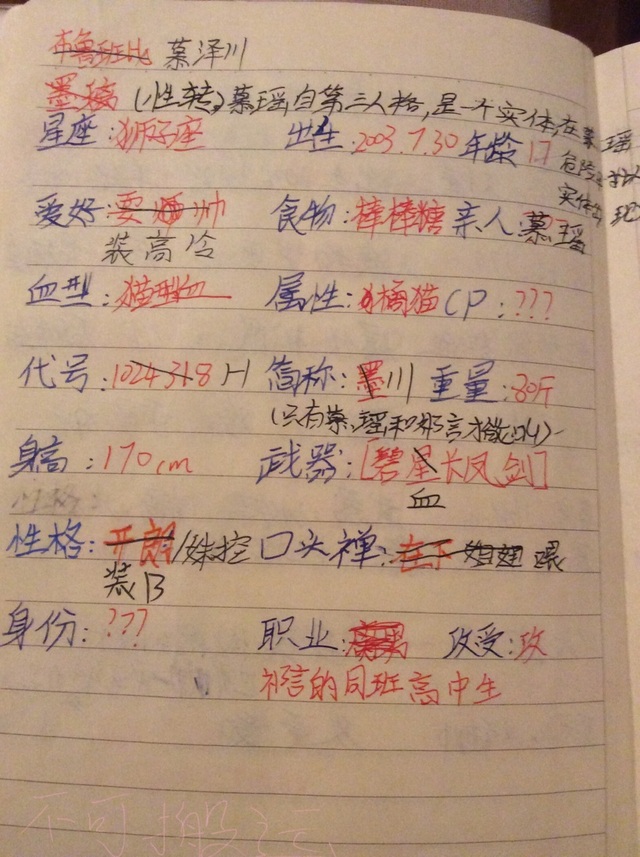 布鲁班比 慕泽川
墨稿 (性转)慕瑶自第三人格,是一个实体,在慕瑶
危险
实体
星座:狮子座 出生:2003.7.30 年龄17
爱好:耍帅 食物:棒棒糖 亲人慕瑶
装高冷
血型:猫型血 属性:橘猫 CP:???
代号:1024318 H 简称:墨川 重量:80斤
(只有慕瑶和祁言才能叫)
身高:170cm 武器:[碧星长凤剑]
血
性格:开朗/妹控 口头禅:在下
装B
身份:??? 职业: 攻受:攻
祁言的同班高中生
不可搬运